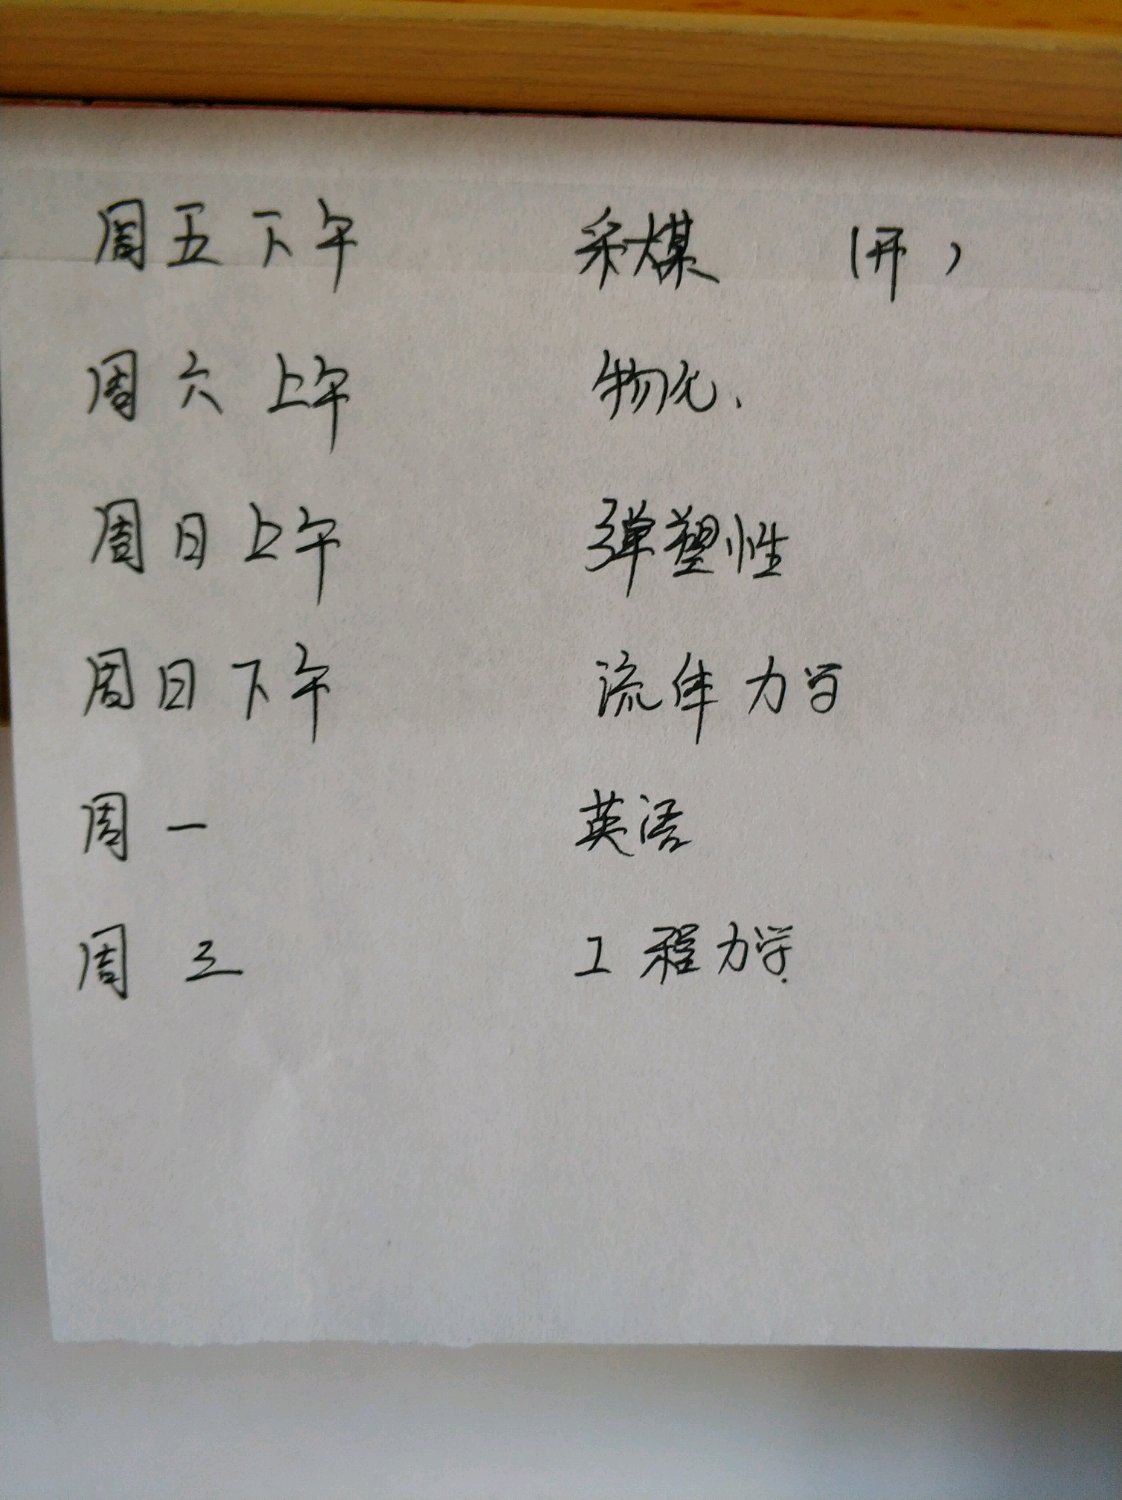 周五下午 采煤 (开)
周六上午 物化.
周日上午 弹塑性
周日下午 流体力学
周一 英语
周三 工程力学.